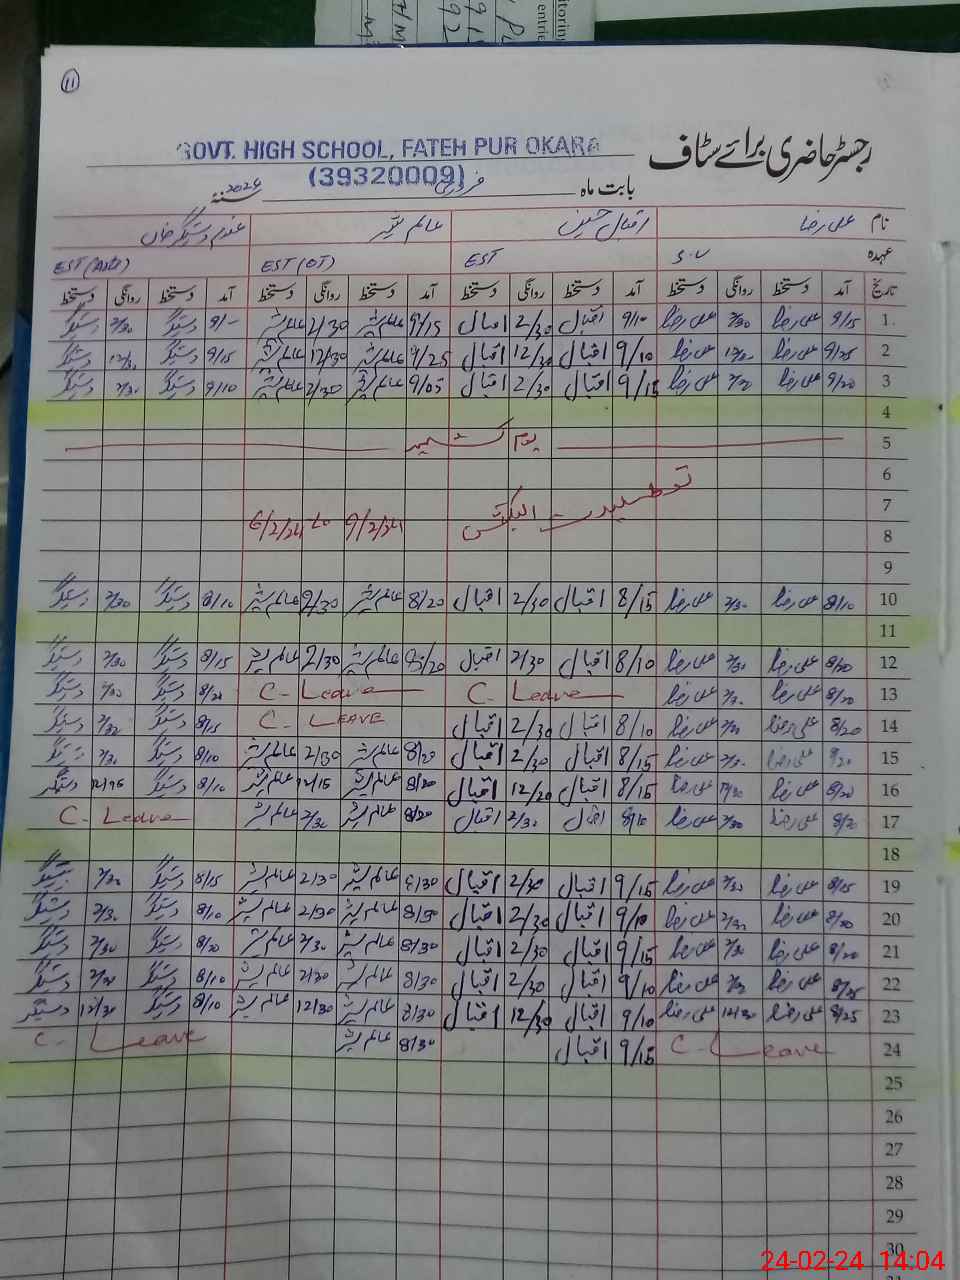 11
رجسٹر حاضری برائے سٹاف
GOVT. HIGH SCHOOL, FATEH PUR OKARA
(39320009)
بابت ماہ فروری 2024 سنہ
نام علی رضا اقبال حسین عالم شیر
عہدہ S.V EST EST (OT) EST
تاریخ آمد دستخط روانگی دستخط آمد دستخط روانگی دستخط آمد دستخط روانگی دستخط آمد دستخط روانگی دستخط
1 9/15 علی رضا 2/30 علی رضا 9/10 اقبال 2/30 اقبال 9/15 عالم شیر 2/30 عالم شیر 9/- دستگیر 2/30 دستگیر
2 9/25 علی رضا علی رضا 9/10 اقبال 12/30 اقبال 9/25 عالم شیر 12/30 عالم شیر 9/15 دستگیر دستگیر
3 9/20 علی رضا علی رضا 9/15 اقبال 2/30 اقبال 9/05 عالم شیر 2/30 عالم شیر 9/10 دستگیر 2/30 دستگیر
4
5 یوم کشمیر
6
7 تعطیلات الیکشن
8 6/2/24 to 9/2/24
9
10 8/10 علی رضا 2/30 علی رضا 8/15 اقبال 2/30 اقبال 8/20 عالم شیر 2/30 عالم شیر 8/10 دستگیر 2/30 دستگیر
11
12 8/20 علی رضا 2/30 علی رضا 8/10 اقبال 2/30 اقبال 8/20 عالم شیر 2/30 عالم شیر 8/15 دستگیر 2/30 دستگیر
13 8/20 علی رضا علی رضا C- Leave C- Leave 8/20 دستگیر دستگیر
14 8/20 علی رضا علی رضا 8/10 اقبال 2/30 اقبال C- LEAVE 8/15 دستگیر دستگیر
15 8/20 علی رضا علی رضا 8/15 اقبال 2/30 اقبال 8/20 عالم شیر 2/30 عالم شیر 8/10 دستگیر
16 8/20 علی رضا علی رضا 8/15 اقبال 12/20 اقبال 8/20 عالم شیر 12/15 عالم شیر 8/10 دستگیر دستگیر
17 8/20 علی رضا 2/30 علی رضا 8/10 اقبال 2/30 اقبال 8/20 عالم شیر 2/30 عالم شیر C- Leave
18
19 8/15 علی رضا 2/30 علی رضا 9/15 اقبال 2/30 اقبال 8/30 عالم شیر 2/30 عالم شیر 8/15 دستگیر دستگیر
20 8/20 علی رضا علی رضا 9/10 اقبال 2/30 اقبال 8/30 عالم شیر 2/30 عالم شیر 8/10 دستگیر 2/30 دستگیر
21 8/20 علی رضا 2/30 علی رضا 9/15 اقبال 2/30 اقبال 8/30 عالم شیر 2/30 عالم شیر 8/20 دستگیر 2/30 دستگیر
22 8/25 علی رضا علی رضا 9/10 اقبال 2/30 اقبال 8/30 عالم شیر 2/30 عالم شیر 8/10 دستگیر دستگیر
23 8/25 علی رضا 12/30 علی رضا 9/10 اقبال 12/30 اقبال 8/30 عالم شیر 12/30 عالم شیر 8/10 دستگیر 12/30 دستگیر
24 C- Leave 9/15 اقبال 8/30 عالم شیر C- Leave
25
26
27
28
29
30
24-02-24 14:04